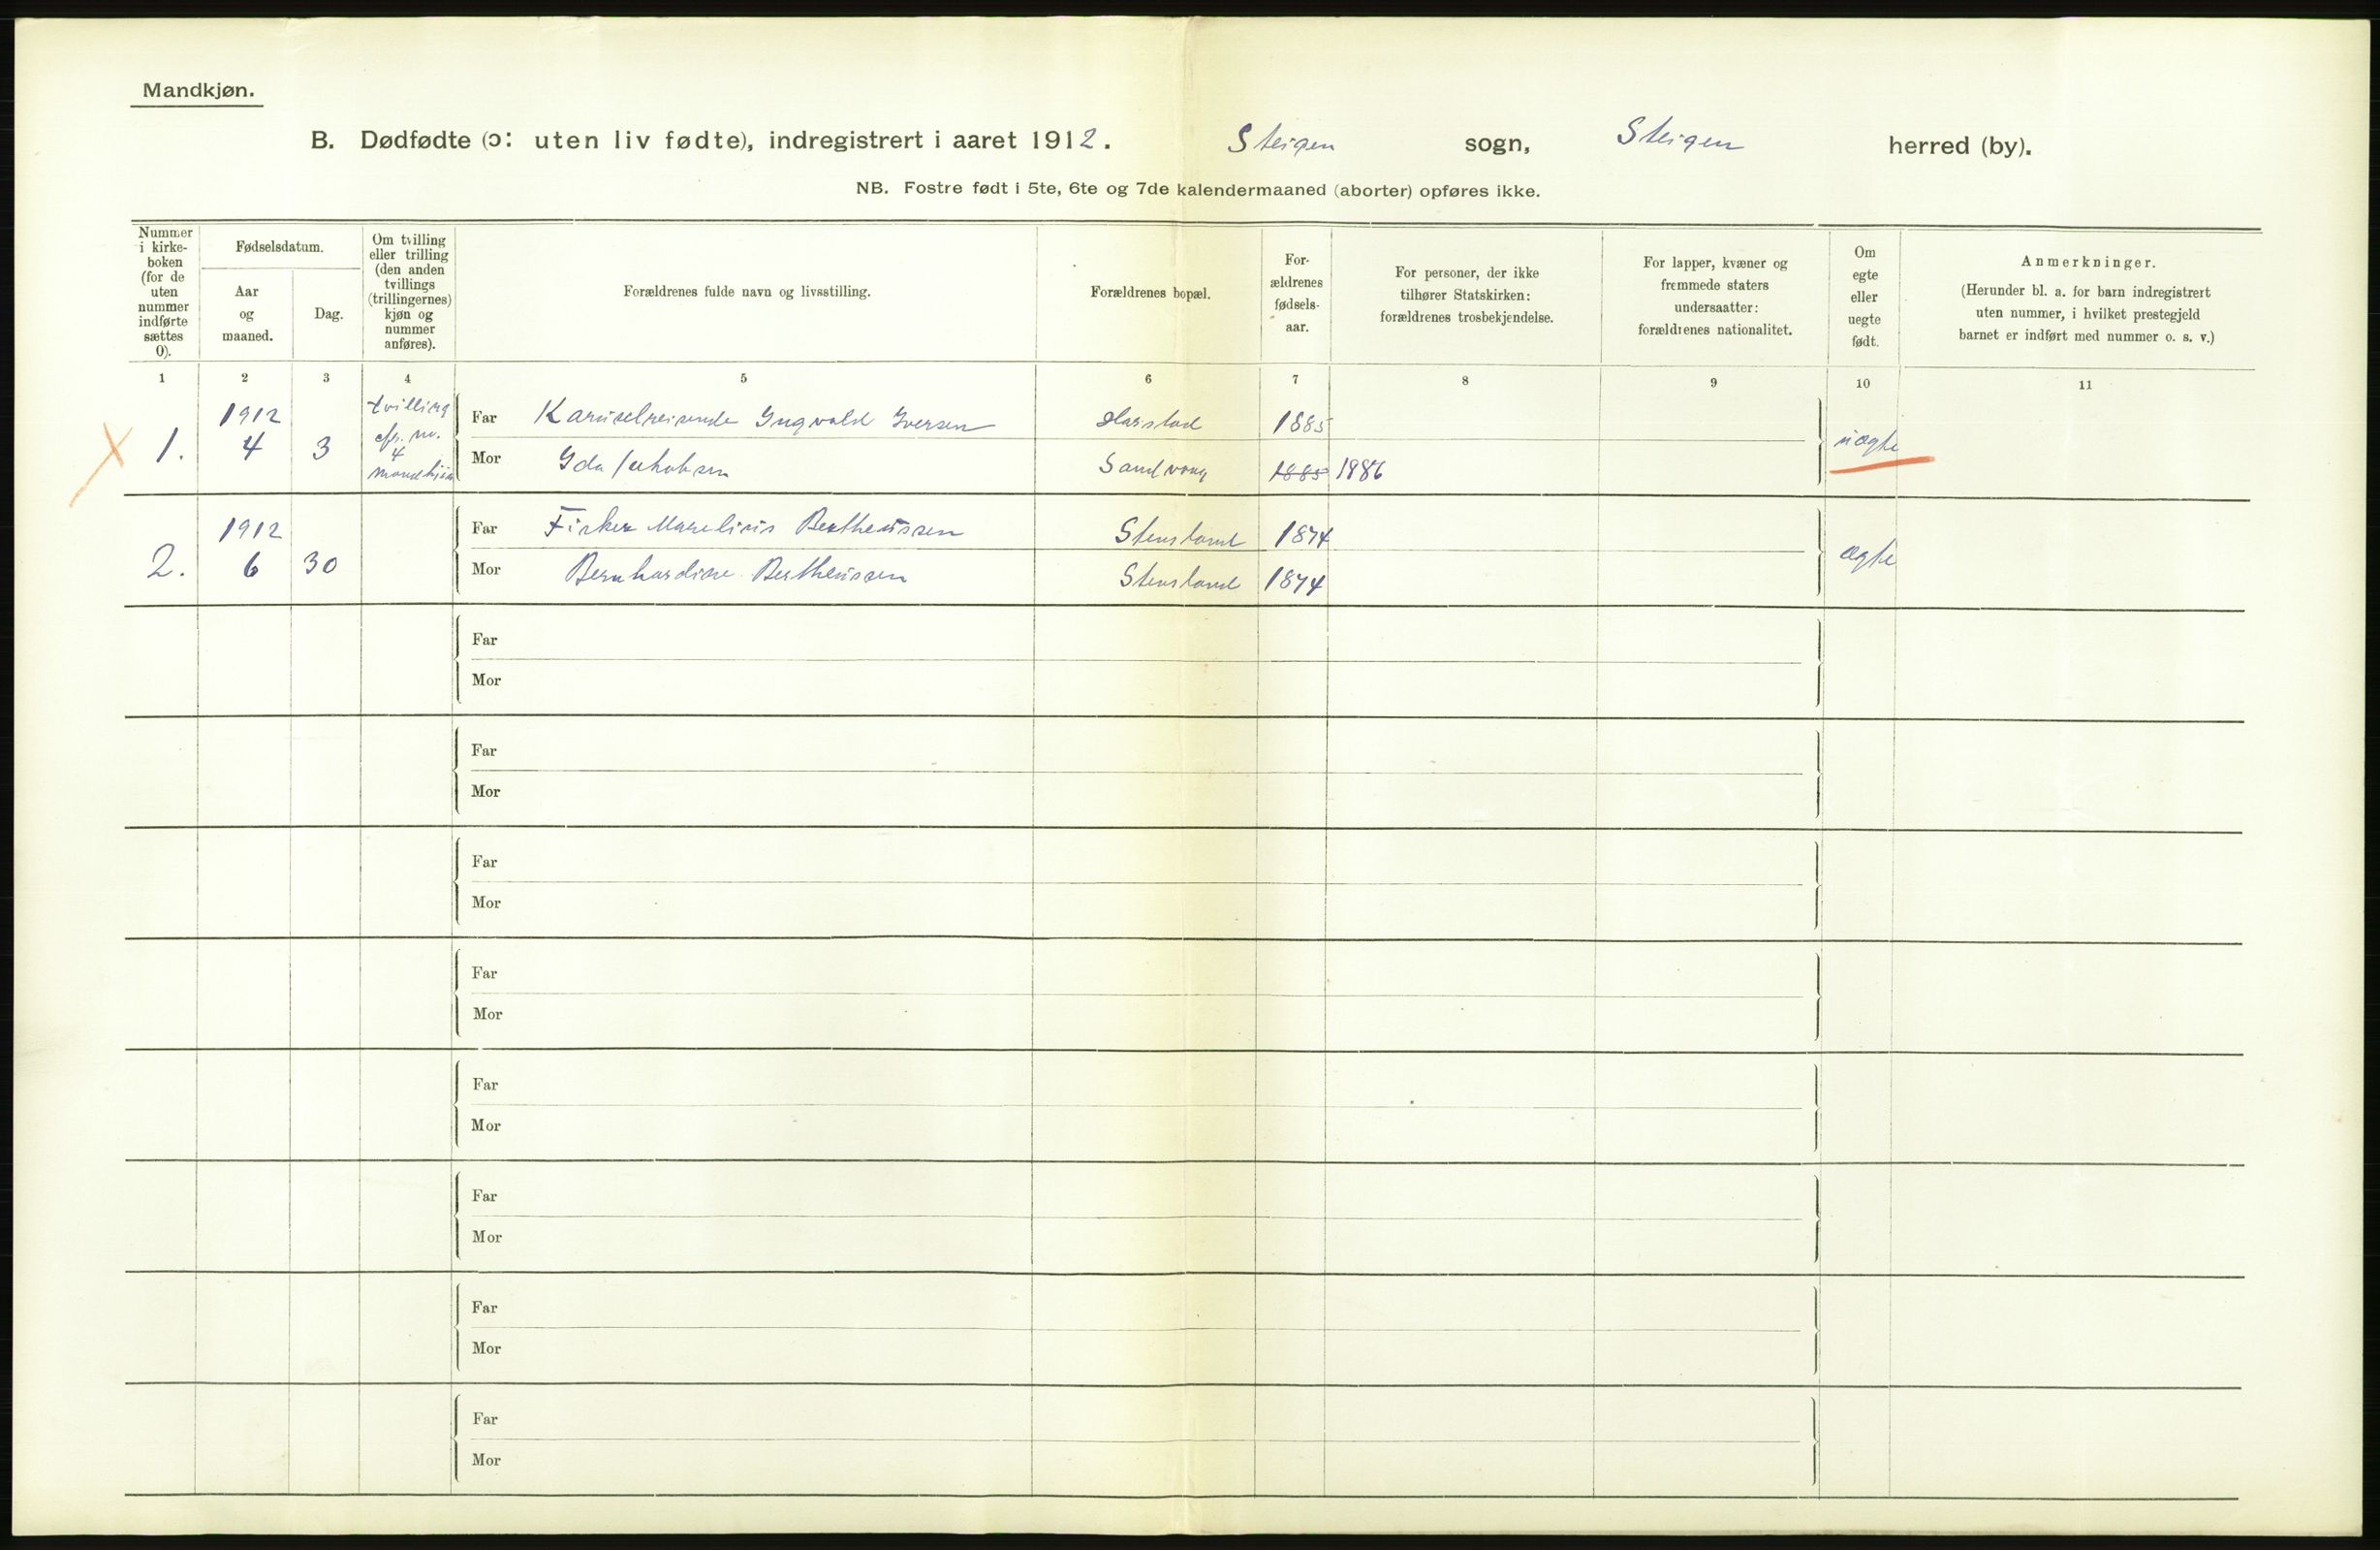 Mandkjøn.
B. Dødfødte (ɔ: uten liv fødte), indregistrert i aaret 1912. Steigen sogn, Steigen herred (by).
NB. Fostre født i 5te, 6te og 7de kalendermaaned (aborter) opføres ikke.
Nummer
i kirke-
boken
(for de
uten
nummer
indførte
sættes
0).
Fødselsdatum.
Aar
og
maaned.
Dag.
Om tvilling
eller trilling
(den anden
tvillings
(trillingernes)
kjøn og
nummer
anføres).
Forældrenes fulde navn og livsstilling.
Forældrenes bopæl.
For-
ældrenes
fødsels-
aar.
For personer, der ikke
tilhører Statskirken:
forældrenes trosbekjendelse.
For lapper, kvæner og
fremmede staters
undersaatter:
forældrenes nationalitet.
Om
egte
eller
uegte
født.
Anmerkninger.
(Herunder bl. a. for barn indregistrert
uten nummer, i hvilket prestegjeld
barnet er indført med nummer o. s. v.)
1 2 3 4 5 6 7 8 9 10 11
1. 1912 4 3
tvilling
cfr. nr.
4
mandkjøn
Far Karuselreisende Ingvald Iversen Harstad 1885
Mor Ida Jakobsen Sandvaag 1885 1886
uægte
2. 1912 6 30
Far Fisker Marelius Bertheussen Stensland 1874
Mor Bernhardine Bertheussen Stensland 1874
ægte
Far
Mor
Far
Mor
Far
Mor
Far
Mor
Far
Mor
Far
Mor
Far
Mor
Far
Mor